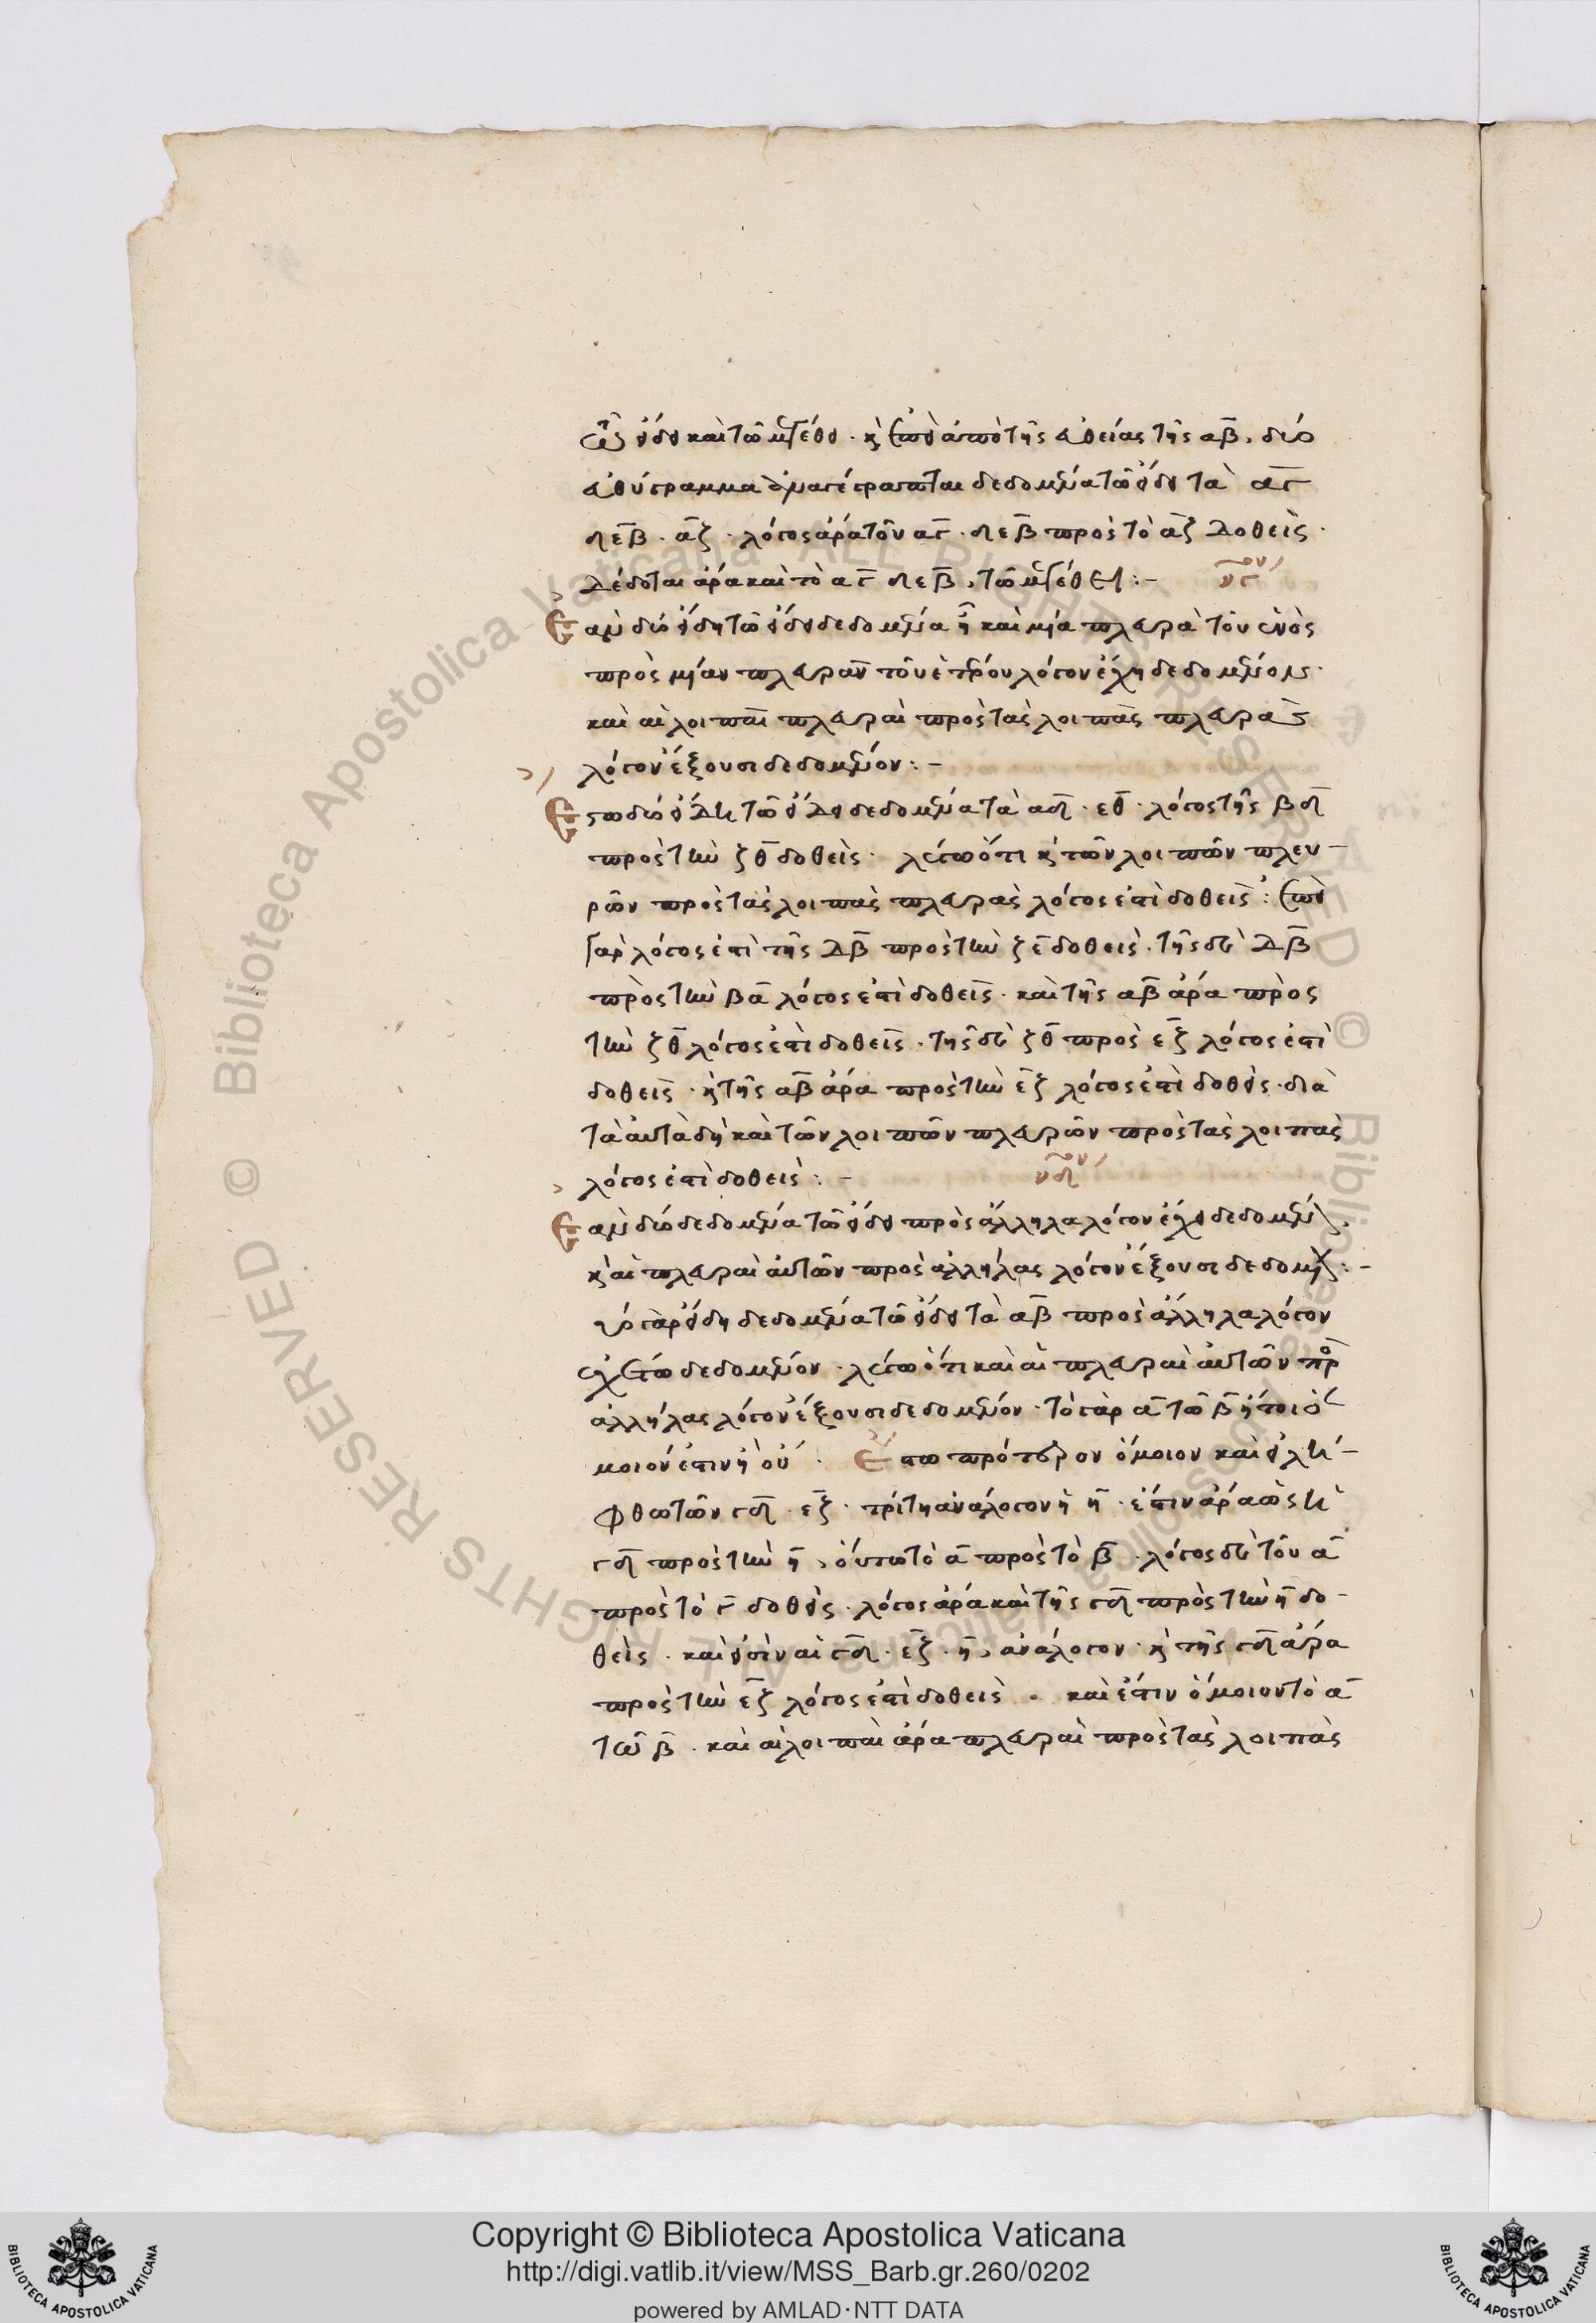 τῷ εἴδει καὶ τῷ μεγέθει · καὶ ἐπεὶ ἀπὸ τῆς εὐθείας τῆς αβ, δύο
εὐθύγραμμα ἀναγέγραπται δεδομένα τῷ εἴδει τὰ αγ
δεβ · αζ · λόγος ἄρα τοῦ αγ · δεβ πρὸς τὸ αζ δοθεὶς ·
δέδοται ἄρα καὶ τὸ αγ δεβ, τῷ μεγέθει :-
νγον
Ἐὰν δύο εἴδη τῷ εἴδει δεδομένα ἦ καὶ μία πλευρὰ τοῦ ἑνὸς
πρὸς μίαν πλευρὰν τοῦ ἑτέρου λόγον ἔχη δεδομένον ·
καὶ αἱ λοιπαὶ πλευραὶ πρὸς τὰς λοιπὰς πλευρὰς
λόγον ἕξουσι δεδομένον :-
Ἔστω δύο εἴδη τῷ εἴδει δεδομένα τὰ αδ · εθ · λόγος τῆς βδ
πρὸς τὴν ζθ δοθεὶς · λέγω ὅτι καὶ τῶν λοιπῶν πλευ-
ρῶν πρὸς τὰς λοιπὰς πλευρὰς λόγος ἐστὶ δοθεὶς : ἐπεὶ
γὰρ λόγος ἐστὶ τῆς δβ πρὸς τὴν ζθ δοθεὶς · τῆς δὲ δβ
πρὸς τὴν βα λόγος ἐστὶ δοθεὶς · καὶ τῆς αβ ἄρα πρὸς
τὴν ζθ λόγος ἐστὶ δοθεὶς · τῆς δὲ ζθ πρὸς εζ λόγος ἐστὶ
δοθεὶς · καὶ τῆς αβ ἄρα πρὸς τὴν εζ λόγος ἐστὶ δοθεὶς · διὰ
τὰ αὐτὰ δὴ καὶ τῶν λοιπῶν πλευρῶν πρὸς τὰς λοιπὰς
λόγος ἐστὶ δοθεὶς :-
νδον
Ἐὰν δύο δεδομένα τῷ εἴδει πρὸς ἄλληλα λόγον ἔχει δεδομένον,
καὶ αἱ πλευραὶ αὐτῶν πρὸς ἀλλήλας λόγον ἕξουσι δεδομένον :-
δύο γὰρ εἴδη δεδομένα τῷ εἴδει τὰ αβ πρὸς ἄλληλα λόγον
ἐχέτω δεδομένον · λέγω ὅτι καὶ αἱ πλευραὶ αὐτῶν πρὸς
ἀλλήλας λόγον ἕξουσι δεδομένον · τὸ γὰρ α τῷ β ἤτοι ὅ-
μοιον ἐστιν ἢ οὔ · Ἔστω πρότερον ὅμοιον καὶ εἰλή-
φθω τῶν γδ · εζ · τρίτη ἀνάλογον ἡ η · ἔστιν ἄρα ὡς ἡ
γδ πρὸς τὴν η, οὕτω τὸ α πρὸς τὸ β · λόγος δὲ τοῦ α
πρὸς τὸ γ δοθεὶς · λόγος ἄρα καὶ τῆς γδ πρὸς τὴν η δο-
θείς · καὶ εἰσὶν αἱ γδ · εζ · η, ἀνάλογον · καὶ τῆς γδ ἄρα
πρὸς τὴν εζ λόγος ἐστὶ δοθεὶς · καὶ ἔστιν ὅμοιον τὸ α
τῷ β · καὶ αἱ λοιπαὶ ἄρα πλευραὶ πρὸς τὰς λοιπὰς
Copyright © Biblioteca Apostolica Vaticana
http://digi.vatlib.it/view/MSS_Barb.gr.260/0202
powered by AMLAD·NTT DATA
BIBLIOTECA APOSTOLICA VATICANA
BIBLIOTECA APOSTOLICA VATICANA
Biblioteca Apostolica Vaticana ALL RIGHTS RESERVED ©